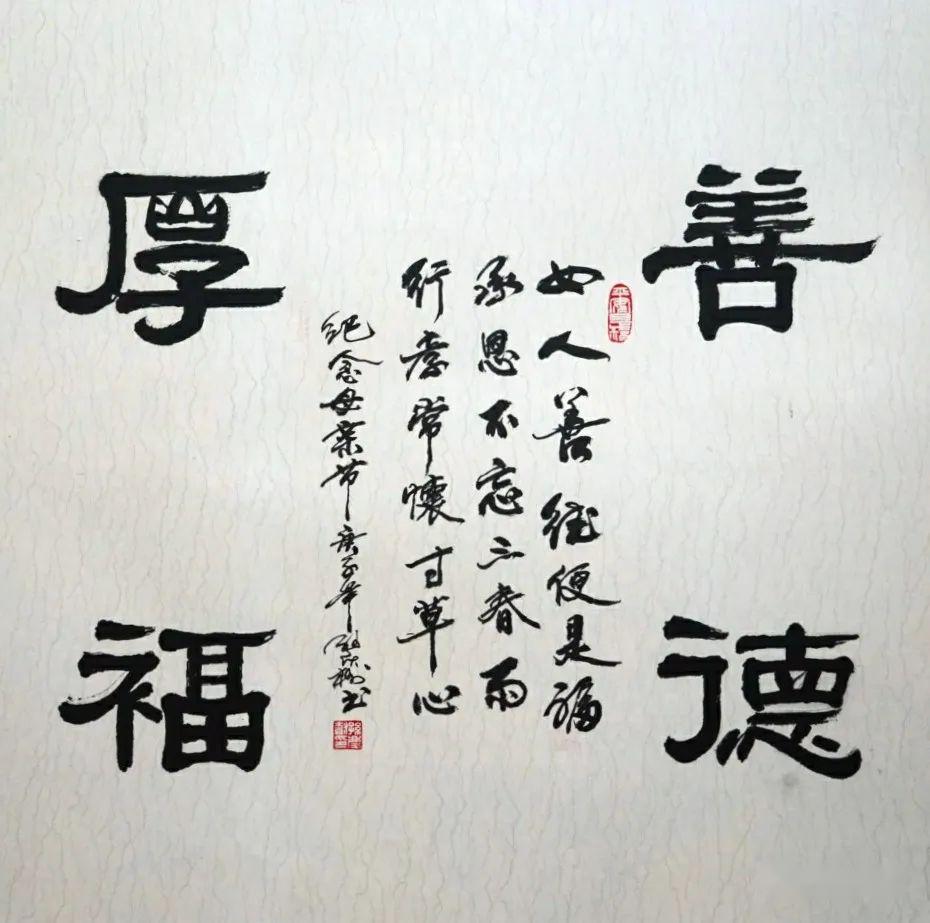 善德
女人善德便是福
承恩不忘三春雨
行孝常懷寸草心
纪念母亲节庚子年书
厚福